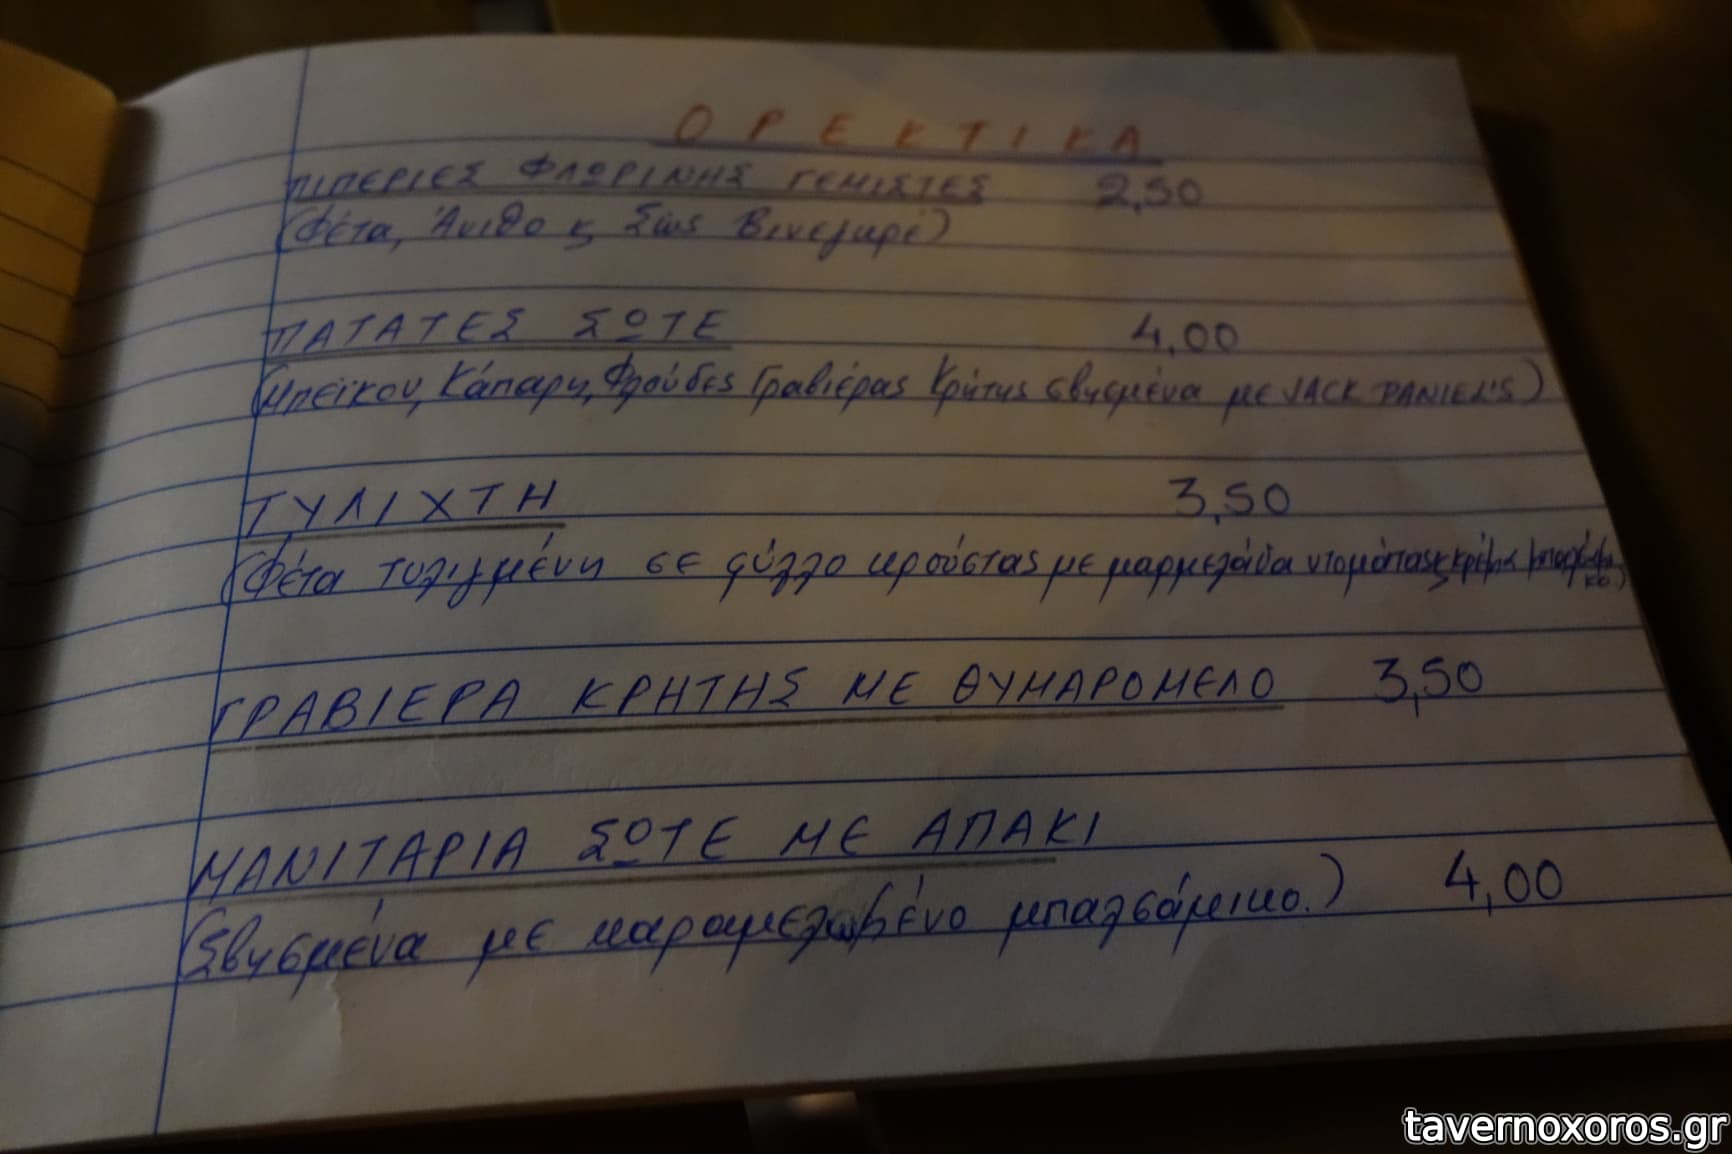 ΟΡΕΚΤΙΚΑ
ΠΙΠΕΡΙΕΣ ΦΛΩΡΙΝΗΣ ΓΕΜΙΣΤΕΣ 2,50
(Φέτα, Άνιθο ς Σώς Βινεγκρέ)
ΠΑΤΑΤΕΣ ΣΩΤΕ 4,00
(Μπέϊκον, Κάπαρη, Φλούδες Γραβιέρας Κρήτης σβησμένα με JACK DANIEL'S)
ΤΥΛΙΧΤΗ 3,50
(Φέτα τυλιγμένη σε φύλλο κρούστας με μαρμελάδα ντομάτας ς κρέμα μπαλσάμικο)
ΓΡΑΒΙΕΡΑ ΚΡΗΤΗΣ ΜΕ ΘΥΜΑΡΟΜΕΛΟ 3,50
ΜΑΝΙΤΑΡΙΑ ΣΩΤΕ ΜΕ ΑΠΑΚΙ
(Σβησμένα με καραμελωμένο μπαλσάμικο.) 4,00
tavernoxoros.gr